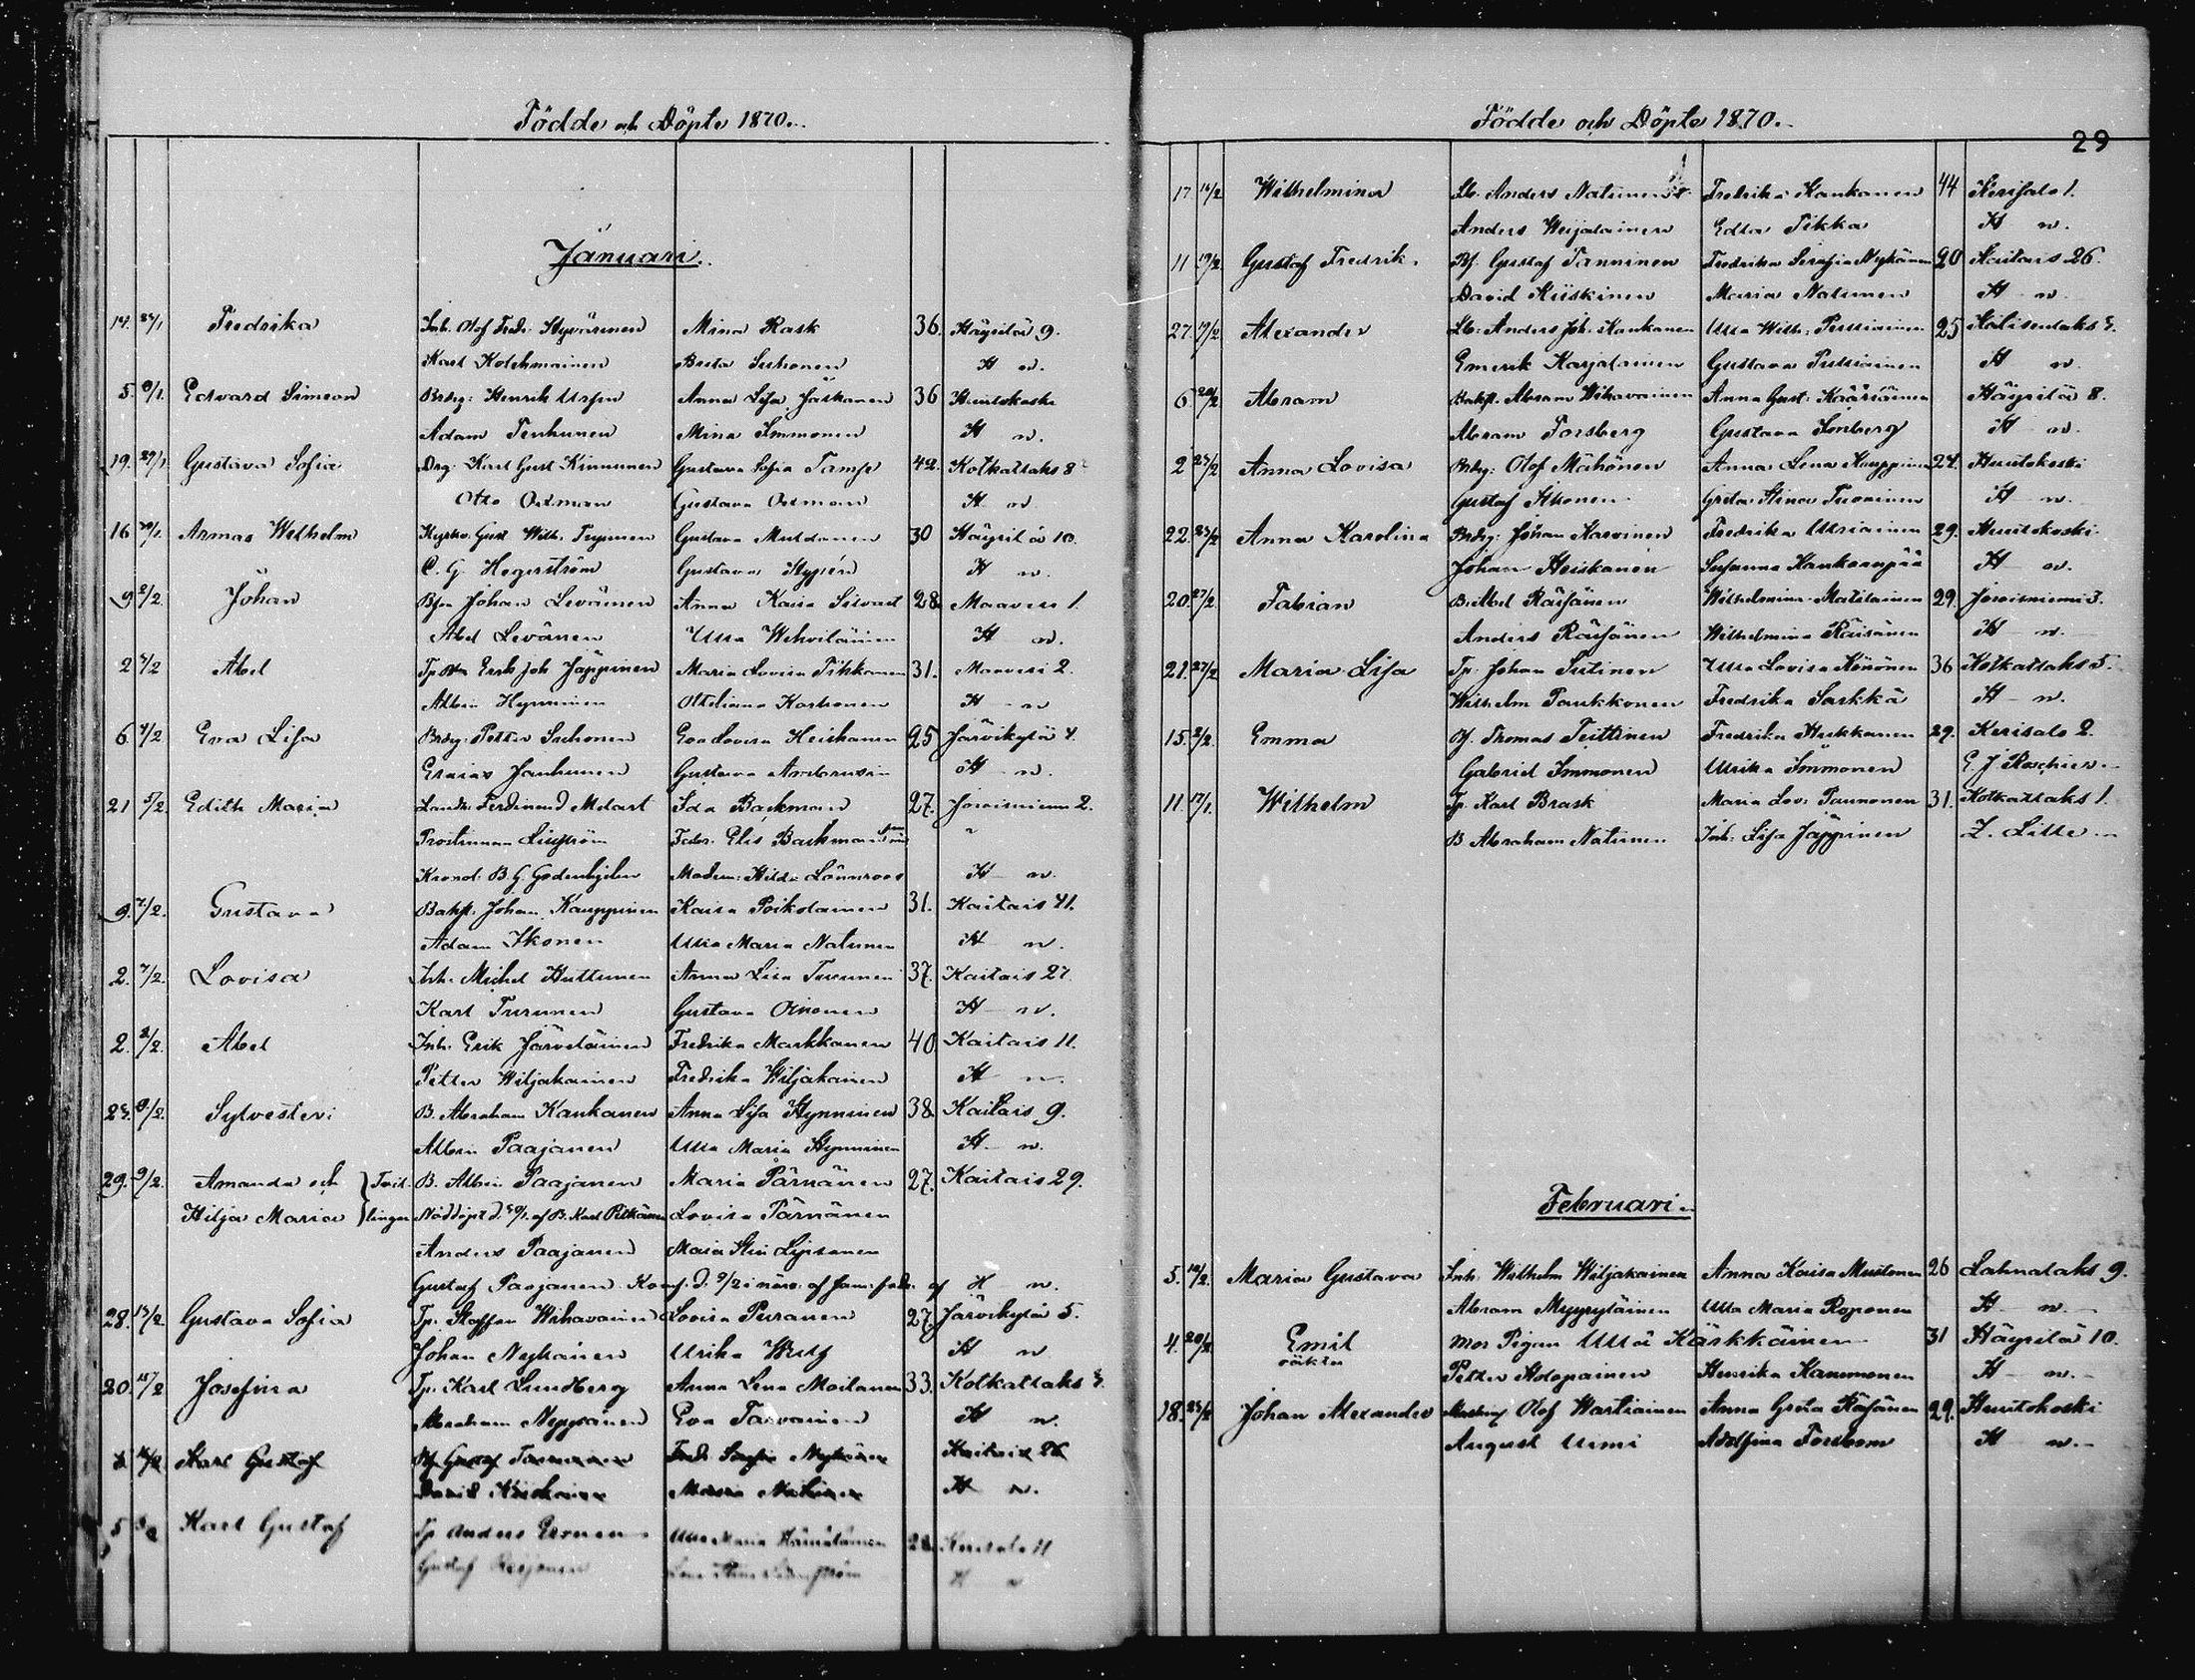 Födde och Döpte 1870.
Januari.
14. 24/1 Fredrika Inh. Olof Fredr. Hyvärinen Mina Rask 36. Häyrilä 9.
Karl Kolehmainen Brita Suhonen H n.
5. 9/1. Edvard Simeon Brdrg: Henrik Urpin Anna Lisa Jäskanen 36 Huutokoski
Adam Tenhunen Mina Immonen H n.
19. 29/1 Gustava Sofia Drg. Karl Gust Kinnunen Gustava Sofia Tamp 42. Kotkatlaks 8
Otto Ortman Gustava Ortman H n
16 30/1. Armas Wilhelm Gust Wilh. Gustava Mustonen 30 Häyrilä 10.
C. G. Hegerström Gustava Hypén H n.
9 2/2. Johan Johan Levänen Anna Kaisa Sivard 28. Maavesi 1.
Abel Levänen Ulla Wehviläinen H n.
2 4/2 Abel Erik Joh Jäppinen Maria Lovisa Pihkanen 31. Maavesi 2.
Albin Hynninen Otteliana Korhonen H n
6. 4/2 Eva Lisa Brdrg. Petter Suhonen Eva Lovisa Heiskanen 25 Järvikylä 4.
Esaias Janhunen Gustava H n.
21 5/2 Edith Maria Ferdinand Melart Ida Backman 27. Joroisniemi 2.
Elis Backman
Kronol. B. G. Godenhjelm Hilda Lönnroos H n.
9. 7/2. Gustava Bakst. Johan Kauppinen Kaisa Poikolainen 31. Kaitais 41.
Adam Ikonen Ulla Maria Natunen H n.
2. 7/2. Lovisa Inh. Michel Huttunen Anna Lisa Turunen 37. Kaitais 27.
Karl Turunen Gustava Oinonen H n.
2. 8/2. Abel Inh. Erik Järveläinen Fredrika Markkanen 40. Kaitais 11.
Petter Wiljakainen Fredrika Wiljakainen H n.
8/2. Sylvesteri B. Abraham Kankanen Anna Lisa Hynninen 38. Kaitais 9.
Albin Paajanen Ulla Maria Hynninen H n.
29. 9/2. Amanda och } Tvil- B. Albin Paajanen Maria Pärnänen 27. Kaitais 29.
Hilja Maria } lingar Nöddöpt d. af B. Karl Pitkänen Lovisa Pärnänen
Anders Paajanen Maria Stin Lipsanen
Gustaf Paajanen. Konf. d. 9/2 i närv. af H n.
28. Gustava Sofia Tp. Staffan Wihavainen Lovisa Puranen 27. Järvikylä 5.
Johan Nykänen Ulrika H n
20. Josefina Tp. Karl Lundberg Anna Lena Moilanen 33. Kotkatlaks
Abraham Nyyssönen Eva Tarvainen H n.
Karl Gustaf Bf Gustaf Tanninen Fredr. Serafia Nykänen Kaitais 26
David Kiiskinen Maria Natunen H n.
5 Karl Gustaf Tp Anders Eronen Ulla Maria Hämäläinen Kerisalo 11
Gustaf H n
Födde och Döpte 1870.
29
17. Wilhelmina Lb. Anders Natunen Fredrika Kankanen 44 Kerisalo 1.
Anders Weijalainen Edla Tikka H n.
11 17/2 Gustaf Fredrik. Bf. Gustaf Tanninen Fredrika Serafia Nykänen 20 Kaitais 26.
David Kiiskinen Maria Natunen H n
27. 17/2. Alexander Lb. Anders Joh. Kankanen Ulla Wilh: 25
Emerik Karjalainen Gustava H n.
6 20/2 Abram Bakst. Abram Wihavainen Anna Gust: Kääriäinen Häyrilä 8.
Abram Forsberg Gustava H n.
2 Anna Lovisa Brdrg: Olof Mähönen Anna Lena Kauppinen 24. Huutokoski
Gustaf Ikonen Greta Stina Tuovinen H n.
22. Anna Karolina Brdrg: Johan Karvinen Fredrika 29. Huutokoski
Johan Heiskanen Susanna Kankaanpää H n.
20. 27/2. Fabian Räisänen Wilhelmina Matilainen 29. Joroisniemi 3.
Anders Räisänen Wilhelmina Räisänen H n.
21. 27/2 Maria Lisa Tp. Johan Sutinen Ulla Lovisa Könönen 36 Kotkatlaks 5.
Wilhelm Paukkonen Fredrika Sarkkä H n.
15. 2/2. Emma Bf. Thomas Teittinen Fredrika Hukkanen 29. Kerisalo 2.
Gabriel Immonen Ulrika Immonen E. J. Roschier
11. 17/1. Wilhelm Tp. Karl Brask Maria Lov: Paunonen 31. Kotkatlaks 1.
B. Abraham Natunen Inh: Lisa Jäppinen Z. Litte
Februari.
5. Maria Gustava Inh: Wilhelm Wiljakainen Anna Kaisa Mustonen 26 Lahnalaks 9.
Abram Myyryläinen Ulla Maria Roponen H n.
4. 20/2 Emil Mor Pigan Ulla Kärkkäinen 31 Häyrilä 10.
oäkta
Petter Holopainen Henrika Kammonen H n.
18. Johan Alexander Olof Wartiainen Anna Greta Räsänen 29. Huutokoski
August Uimi Adolfina Forsbom H n.